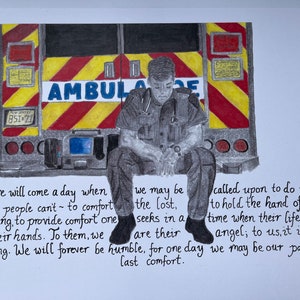 AMBULANCE
ere will come a day when we may be called upon to do
people can't - to comfort the lost, to hold the hand of
ng, to provide comfort one seeks in a time when their life
eir hands. To them, we are their angel; to us, it i
ng. We will forever be humble, for one day we may be our pa
last comfort.